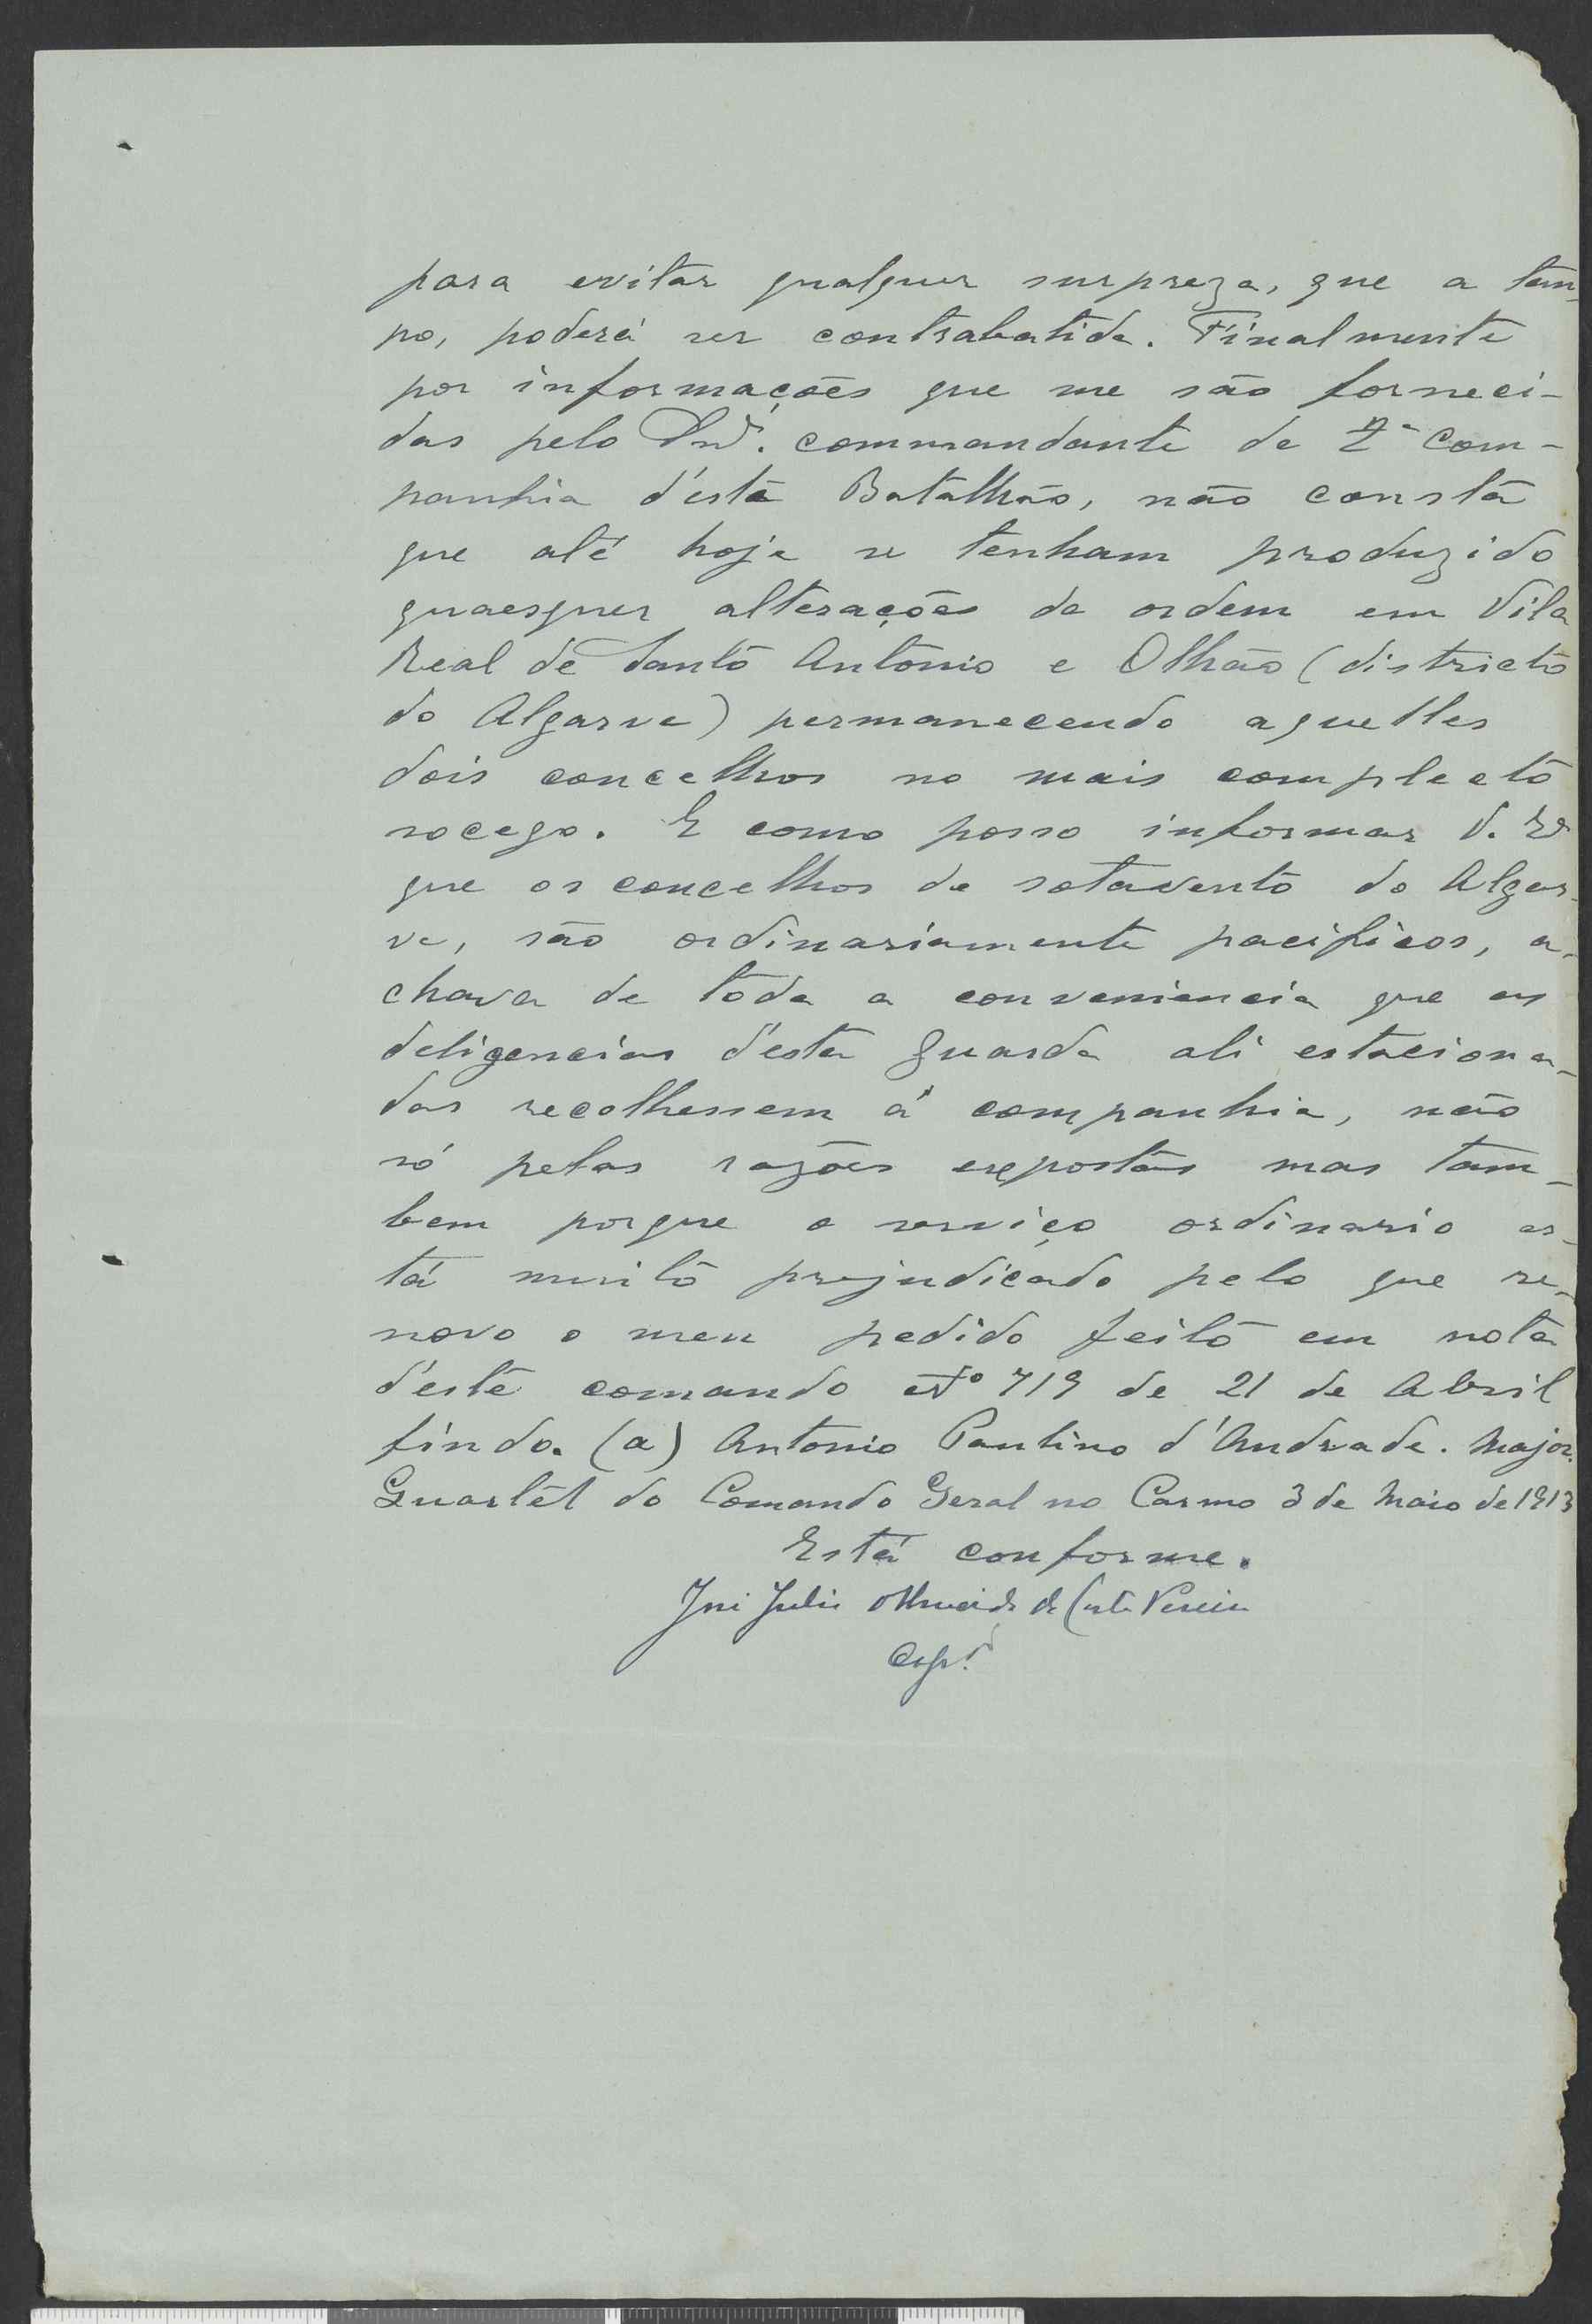 para evitar qualquer surpreza, que a tem-
po, poderá ser contrabatida. Finalmente
por informações que me são forneci-
das pelo Snr. commandante da 2ª Com-
panhia d'este Batalhão, não consta
que até hoje se tenham produzido
quaesquer alterações da ordem em Vila
Real de Santo Antonio e Olhão (districto
do Algarve) permanecendo aquelles
dois concelhos no mais completo
socego. E como posso informar V. Exª
que os concelhos de sotavento do Algar-
ve, são ordinariamente pacificos, a-
chava de toda a conveniencia que as
deligencias d'esta Guarda ali estaciona-
das recolhessem á companhia, não
só pelas razões expostas mas tam-
bem porque o serviço ordinario es-
tá muito prejudicado pelo que re-
novo o meu pedido feito em nota
d'este comando Nº 719 de 21 de Abril
findo. (a) Antonio Paulino d'Andrade. Major.
Quartel do Comando Geral no Carmo 3 de Maio de 1913
Está conforme.
José Julio Almeida da Costa Pereira
Capm